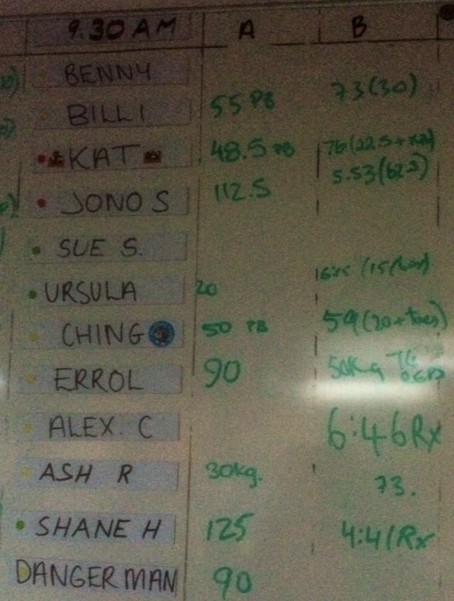 9.30 AM A B
BENNY
BILLI 55 PB 73(30)
KAT 48.5 PB 76(22.5+
JONO S 112.5 5.53(62.5)
SUE S.
URSULA 20
CHING 50 PB 59(20+toes)
ERROL 90 50kg
ALEX. C 6:46 Rx
ASH R 30kg. 73.
SHANE H 125 4:41 Rx
DANGERMAN 90